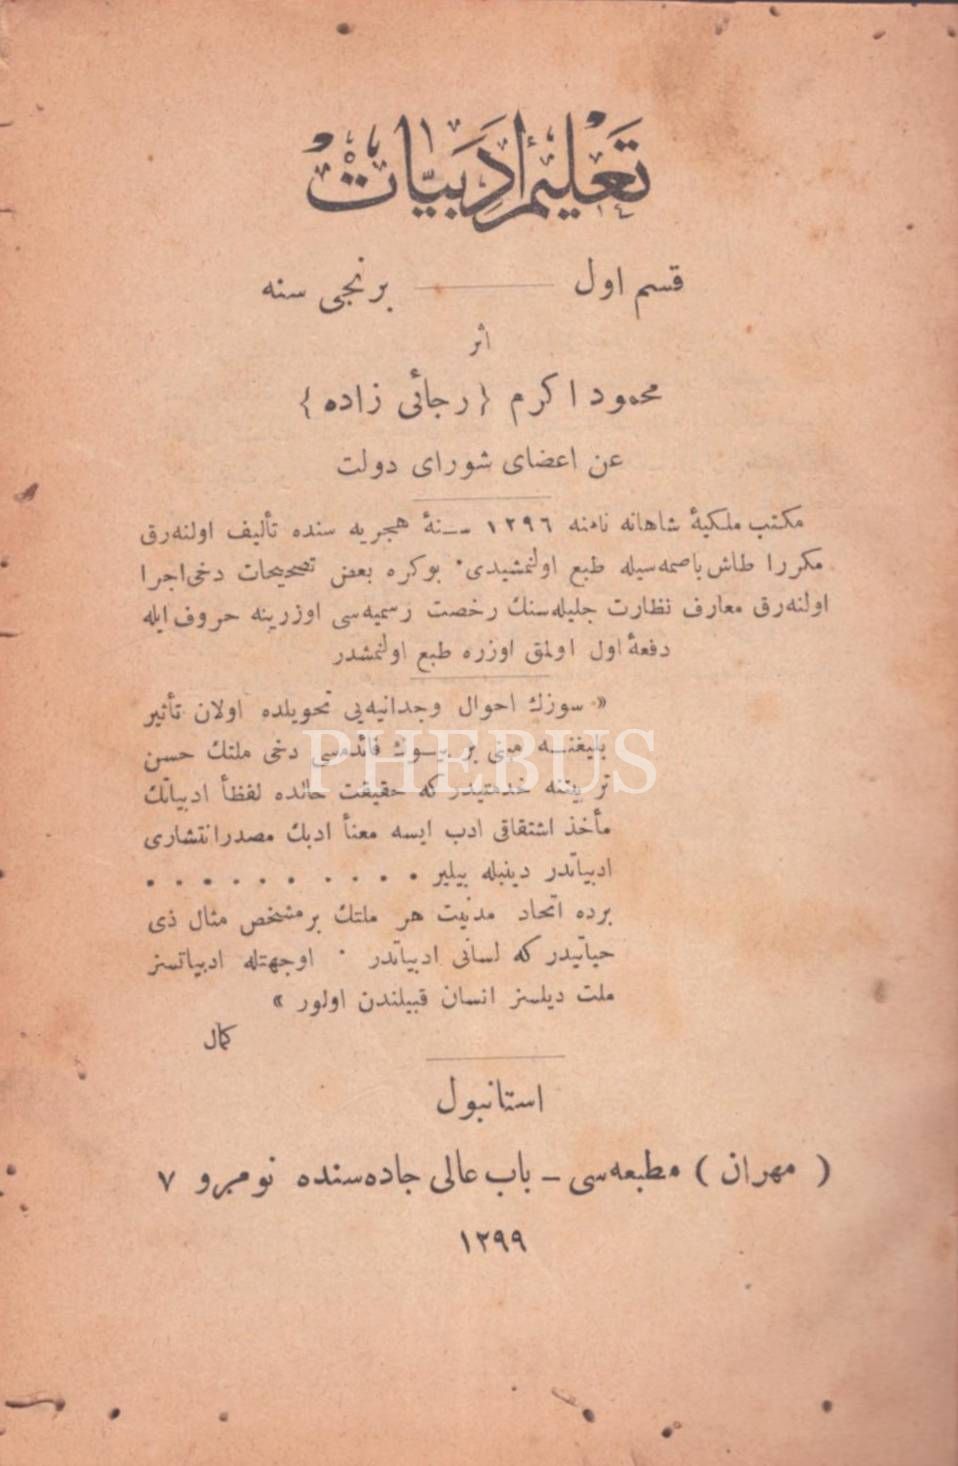 تعليم ادبيات
قسم اول — برنجى سنه
اثر
محمود اكرم {رجائى زاده}
عن اعضاى شوراى دولت
مكتب ملكيهٔ شاهانه نامنه ١٢٩٦ سـنهٔ هجريه سنده تأليف اولنه‌رق
مكررا طاش باصمه‌سيله طبع اولنمشيدى. بوكره بعض تصحيحات دخى اجرا
اولنه‌رق معارف نظارت جليله‌سنك رخصت رسميه‌سى اوزرينه حروف ايله
دفعهٔ اول اولمق اوزره طبع اولنمشدر
« سوزك احوال وجدانيه‌يى تحويلده اولان تأثير
بليغنـه مبنى بر بيـوك فائده‌سى دخى ملتك حسن
تربيتنه خدمتيدر كه حقيقت حالده لفظاً ادبياتك
مأخذ اشتقاقى ادب ايسه معناً ادبك مصدر انتشارى
ادبياتدر دينيله بيلير . . . . . . . . . .
برده اتحاد مدنيت هر ملتك بر مشخص مثال ذى
حياتيدر كه لسانى ادبياتدر . اوجهتله ادبياتسز
ملت ديلسز انسان قبيلندن اولور »
كمال
استانبول
( مهران ) مطبعه‌سى ـ باب عالى جاده‌سنده نومرو ٧
١٢٩٩
PHEBUS